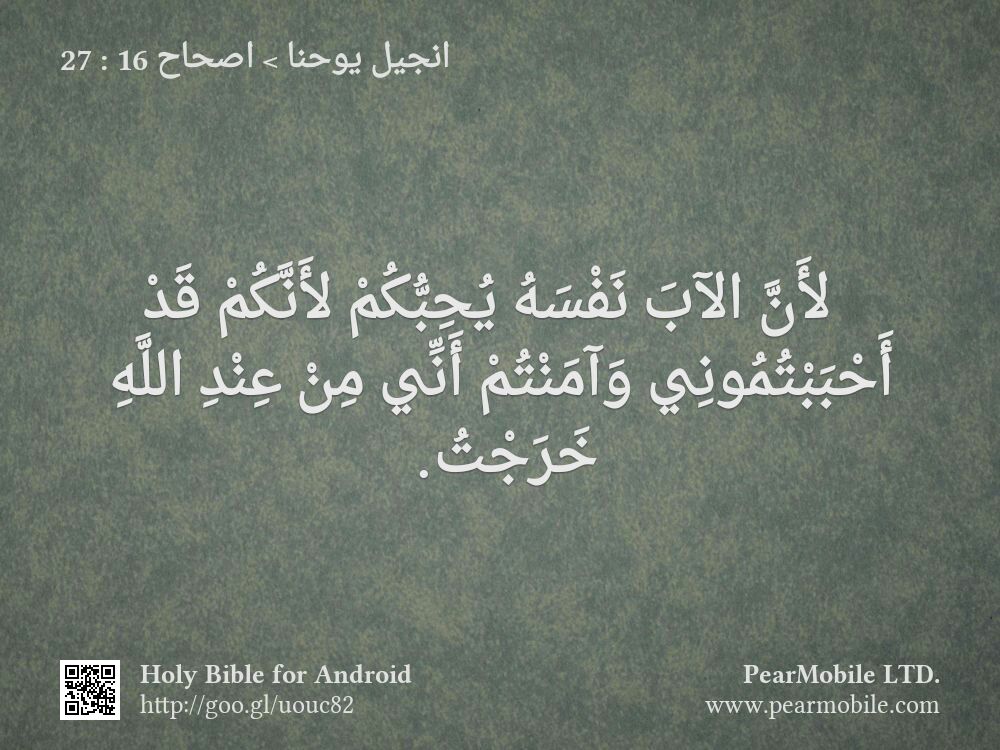 انجيل يوحنا > اصحاح 16 : 27
لأَنَّ الآبَ نَفْسَهُ يُحِبُّكُمْ لأَنَّكُمْ قَدْ
أَحْبَبْتُمُونِي وَآمَنْتُمْ أَنِّي مِنْ عِنْدِ اللَّهِ
خَرَجْتُ.
Holy Bible for Android
http://goo.gl/uouc82
PearMobile LTD.
www.pearmobile.com